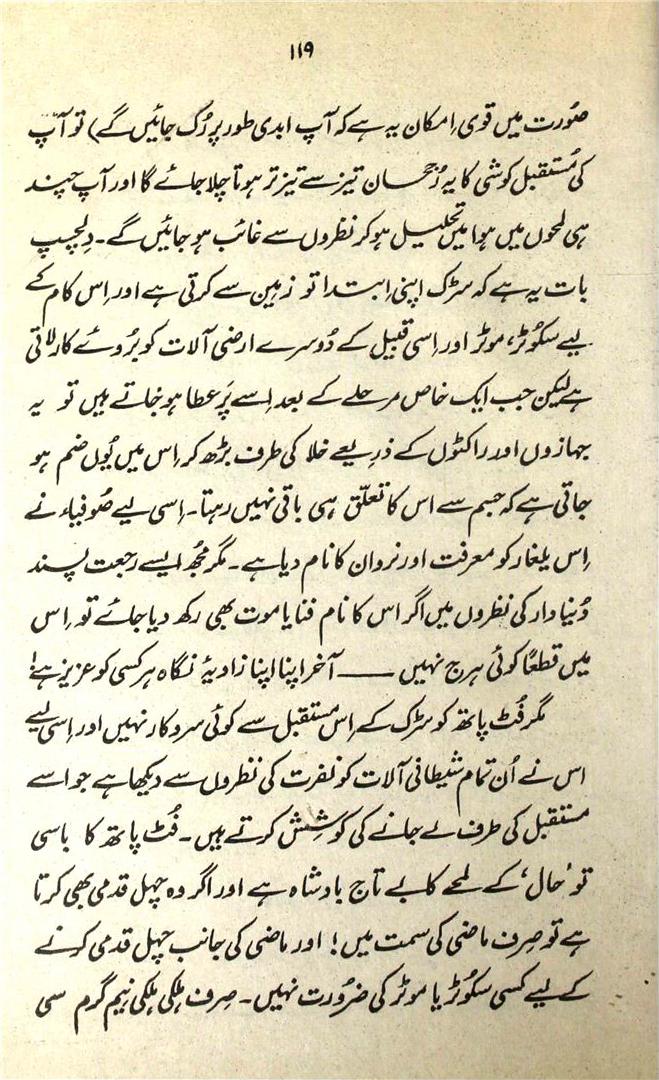 ۱۱۹
صُورت میں قوی اِمکان یہ ہے کہ آپ ابدی طور پر رُک جائیں گے) تو آپ
کی مُستقبل کوشی کا یہ رُجحان تیز سے تیز تر ہوتا چلا جائے گا اور آپ چند
ہی لمحوں میں ہوا میں تحلیل ہو کر نظروں سے غائب ہو جائیں گے۔ دِلچسپ
بات یہ ہے کہ سڑک اپنی اِبتدا تو زمین سے کرتی ہے اور اِس کام کے
لیے سکُوٹر، موٹر اور اِسی قبیل کے دُوسرے ارضی آلات کو برُوئے کار لاتی
ہے لیکن جب ایک خاص مرحلے کے بعد اِسے پَر عطا ہو جاتے ہیں تو یہ
جہازوں اور راکٹوں کے ذریعے خلا کی طرف بڑھ کر اِس میں یُوں ضم ہو
جاتی ہے کہ جسم سے اس کا تعلّق ہی باقی نہیں رہتا۔ اِسی لیے صُوفیاء نے
اِس یلغار کو معرفت اور نروان کا نام دیا ہے۔ مگر مجُھ ایسے رجعت پسند
دُنیا دار کی نظروں میں اگر اس کا نام فنا یا موت بھی رکھ دیا جائے تو اِس
میں قطعًا کوئی ہرج نہیں —— آخر اپنا اپنا زاویۂ نگاہ ہر کسی کو عزیز ہے!
مگر فُٹ پاتھ کو سڑک کے اِس مستقبل سے کوئی سروکار نہیں اور اِسی لیے
اس نے اُن تمام شیطانی آلات کو نفرت کی نظروں سے دیکھا ہے جو اسے
مستقبل کی طرف لے جانے کی کوشِش کرتے ہیں۔ فُٹ پاتھ کا باسی
تو ’حال‘ کے لمحے کا بے تاج بادشاہ ہے اور اگر وہ چہل قدمی بھی کرتا
ہے تو صِرف ماضی کی سمت میں! اور ماضی کی جانب چہل قدمی کرنے
کے لیے کسی سکوُٹر یا موٹر کی ضرُورت نہیں۔ صِرف ہلکی ہلکی نیم گرم سی